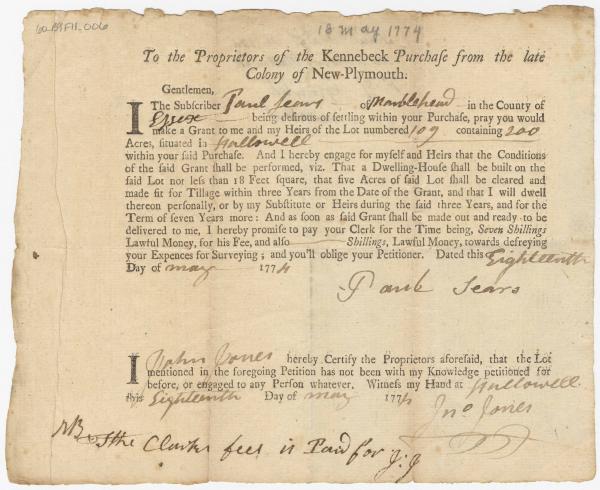 60.B9F11.006
18 May 1774
To the Proprietors of the Kennebeck Purchaſe from the late
Colony of New-Plymouth.
Gentlemen,
I The Subſcriber Paul Sears of Marblehead in the County of
Essex being deſirous of ſettling within your Purchaſe, pray you would
make a Grant to me and my Heirs of the Lot numbered 109 containing 200
Acres, ſituated in Hallowell
within your ſaid Purchaſe. And I hereby engage for myſelf and Heirs that the Conditions
of the ſaid Grant ſhall be performed, viz. That a Dwelling-Houſe ſhall be built on the
ſaid Lot not leſs than 18 Feet ſquare, that five Acres of ſaid Lot ſhall be cleared and
made fit for Tillage within three Years from the Date of the Grant, and that I will dwell
thereon perſonally, or by my Subſtitute or Heirs during the ſaid three Years, and for the
Term of ſeven Years more: And as ſoon as ſaid Grant ſhall be made out and ready to be
delivered to me, I hereby promiſe to pay your Clerk for the Time being, Seven Shillings
Lawful Money, for his Fee, and alſo Shillings, Lawful Money, towards defreying
your Expences for Surveying; and you'll oblige your Petitioner. Dated this Eighteenth
Day of may 1774
Paul Sears
I John Jones hereby Certify the Proprietors aforeſaid, that the Lot
mentioned in the foregoing Petition has not been with my Knowledge petitioned for
before, or engaged to any Perſon whatever. Witneſs my Hand at Hallowell
this Eighteenth Day of may 1774
Jno Jones
NB the Clarks fees is Paid for J:J